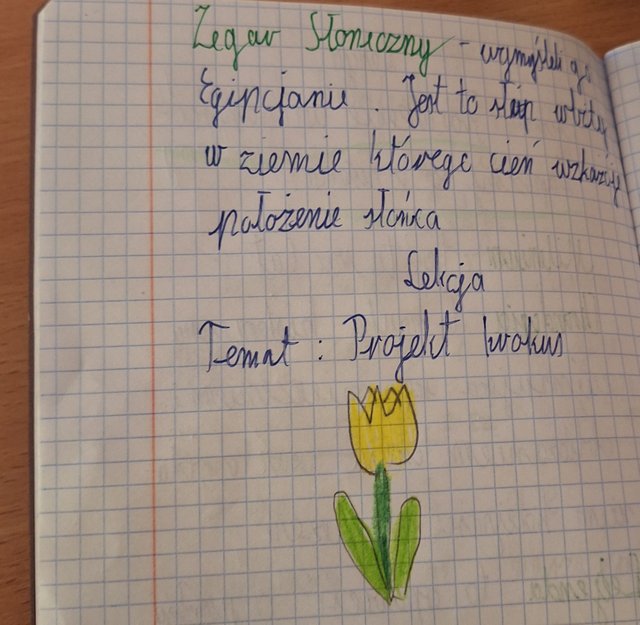 Zegar Słoneczny - wymyśleli go
Egipcjanie. Jest to słup wbity
w ziemie którego cień wzkazuje
położenie słońca
Lekcja
Temat: Projekt krokus